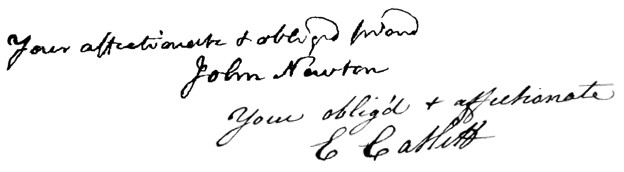 Your affectionate & oblig'd friend
John Newton
Your oblig'd & affectionate
E Catlett